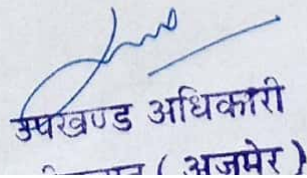 उपखण्ड अधिकारी
( अजमेर )